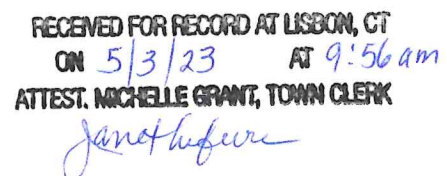 RECEIVED FOR RECORD AT LISBON, CT
ON 5/3/23 AT 9:56 am
ATTEST. MICHELLE GRANT, TOWN CLERK
Janet